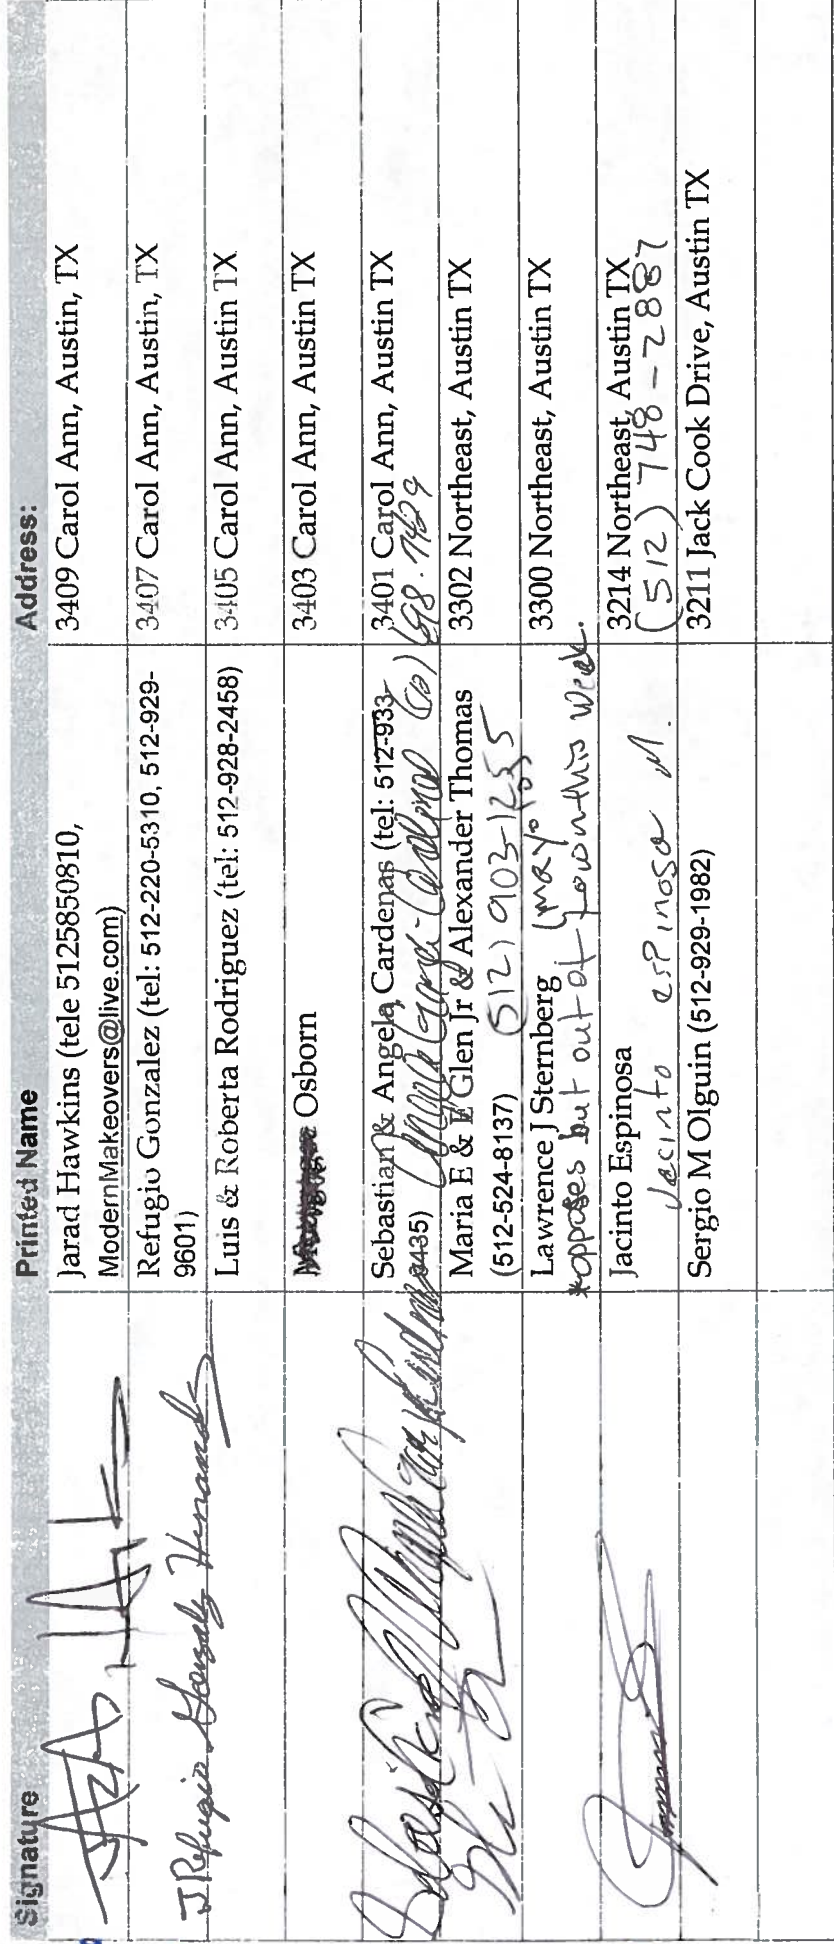 Signature Printed Name Address:
Jarad Hawkins (tele 5125850810,
ModernMakeovers@live.com)
3409 Carol Ann, Austin, TX
J Refugio Gonzalez
Refugio Gonzalez (tel: 512-220-5310, 512-929-
9601)
3407 Carol Ann, Austin, TX
Luis & Roberta Rodriguez (tel: 512-928-2458)
3405 Carol Ann, Austin TX
Osborn
3403 Carol Ann, Austin TX
Sebastian & Angela Cardenas (tel: 512-933-
0435) Angela Garza-Cardenas
3401 Carol Ann, Austin TX
Maria E & E Glen Jr & Alexander Thomas
(512-524-8137) (512) 903-1255
3302 Northeast, Austin TX
Lawrence J Sternberg
*opposes but out of town this week.
3300 Northeast, Austin TX
Jacinto Espinosa
Jacinto espinosa M.
3214 Northeast, Austin TX
(512) 748-2887
Sergio M Olguin (512-929-1982)
3211 Jack Cook Drive, Austin TX